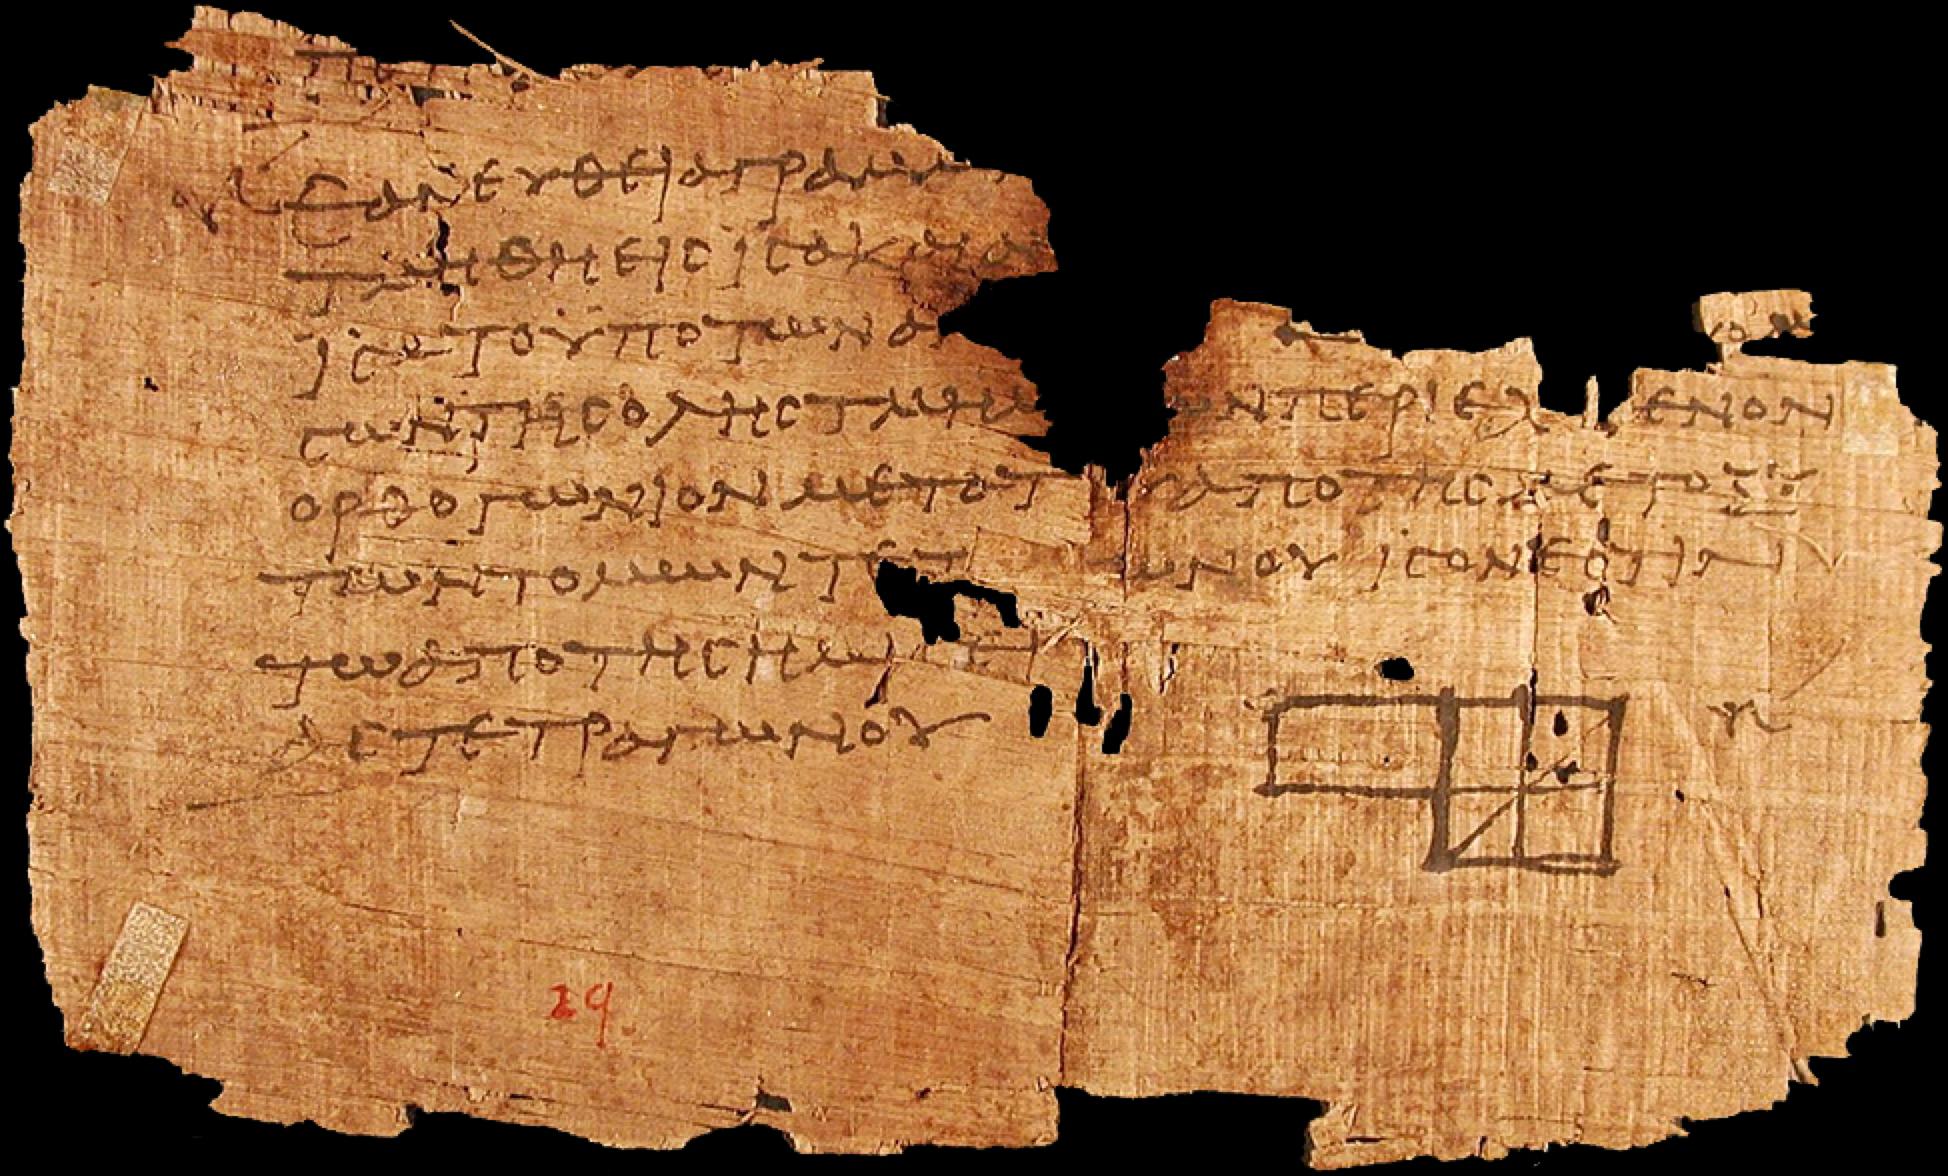 ΕΑΝΕΥΘΕΙΑΓΡΑΜΜ
ΤΜΗΘΗΕΙϹΙϹΑΚΑΙΑ
ΙϹΑΤΟΥΠΟΤΩΝΑ
ϹΩΝΤΗϹΟΛΗϹΤΜΗΜ ΩΝΠΕΡΙΕΧ ΕΝΟΝ
ΟΡΘΟΓΩΝΙΟΝΜΕΤΟΤ ΥΑΠΟΤΗϹΜΕΤΟΞΥ
ΤΩΝΤΟΜΩΝΤΕΤ ΩΝΟΥΙϹΟΝΕϹΤΙΝ
ΤΩΑΠΟΤΗϹΗΜΙ
ΑϹΤΕΤΡΑΓΩΝΟΥ
29